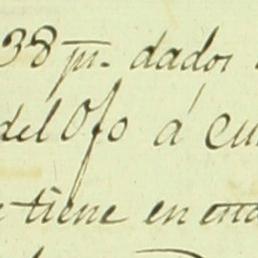 38 ps. dados
del Ofo á cu
e tiene en